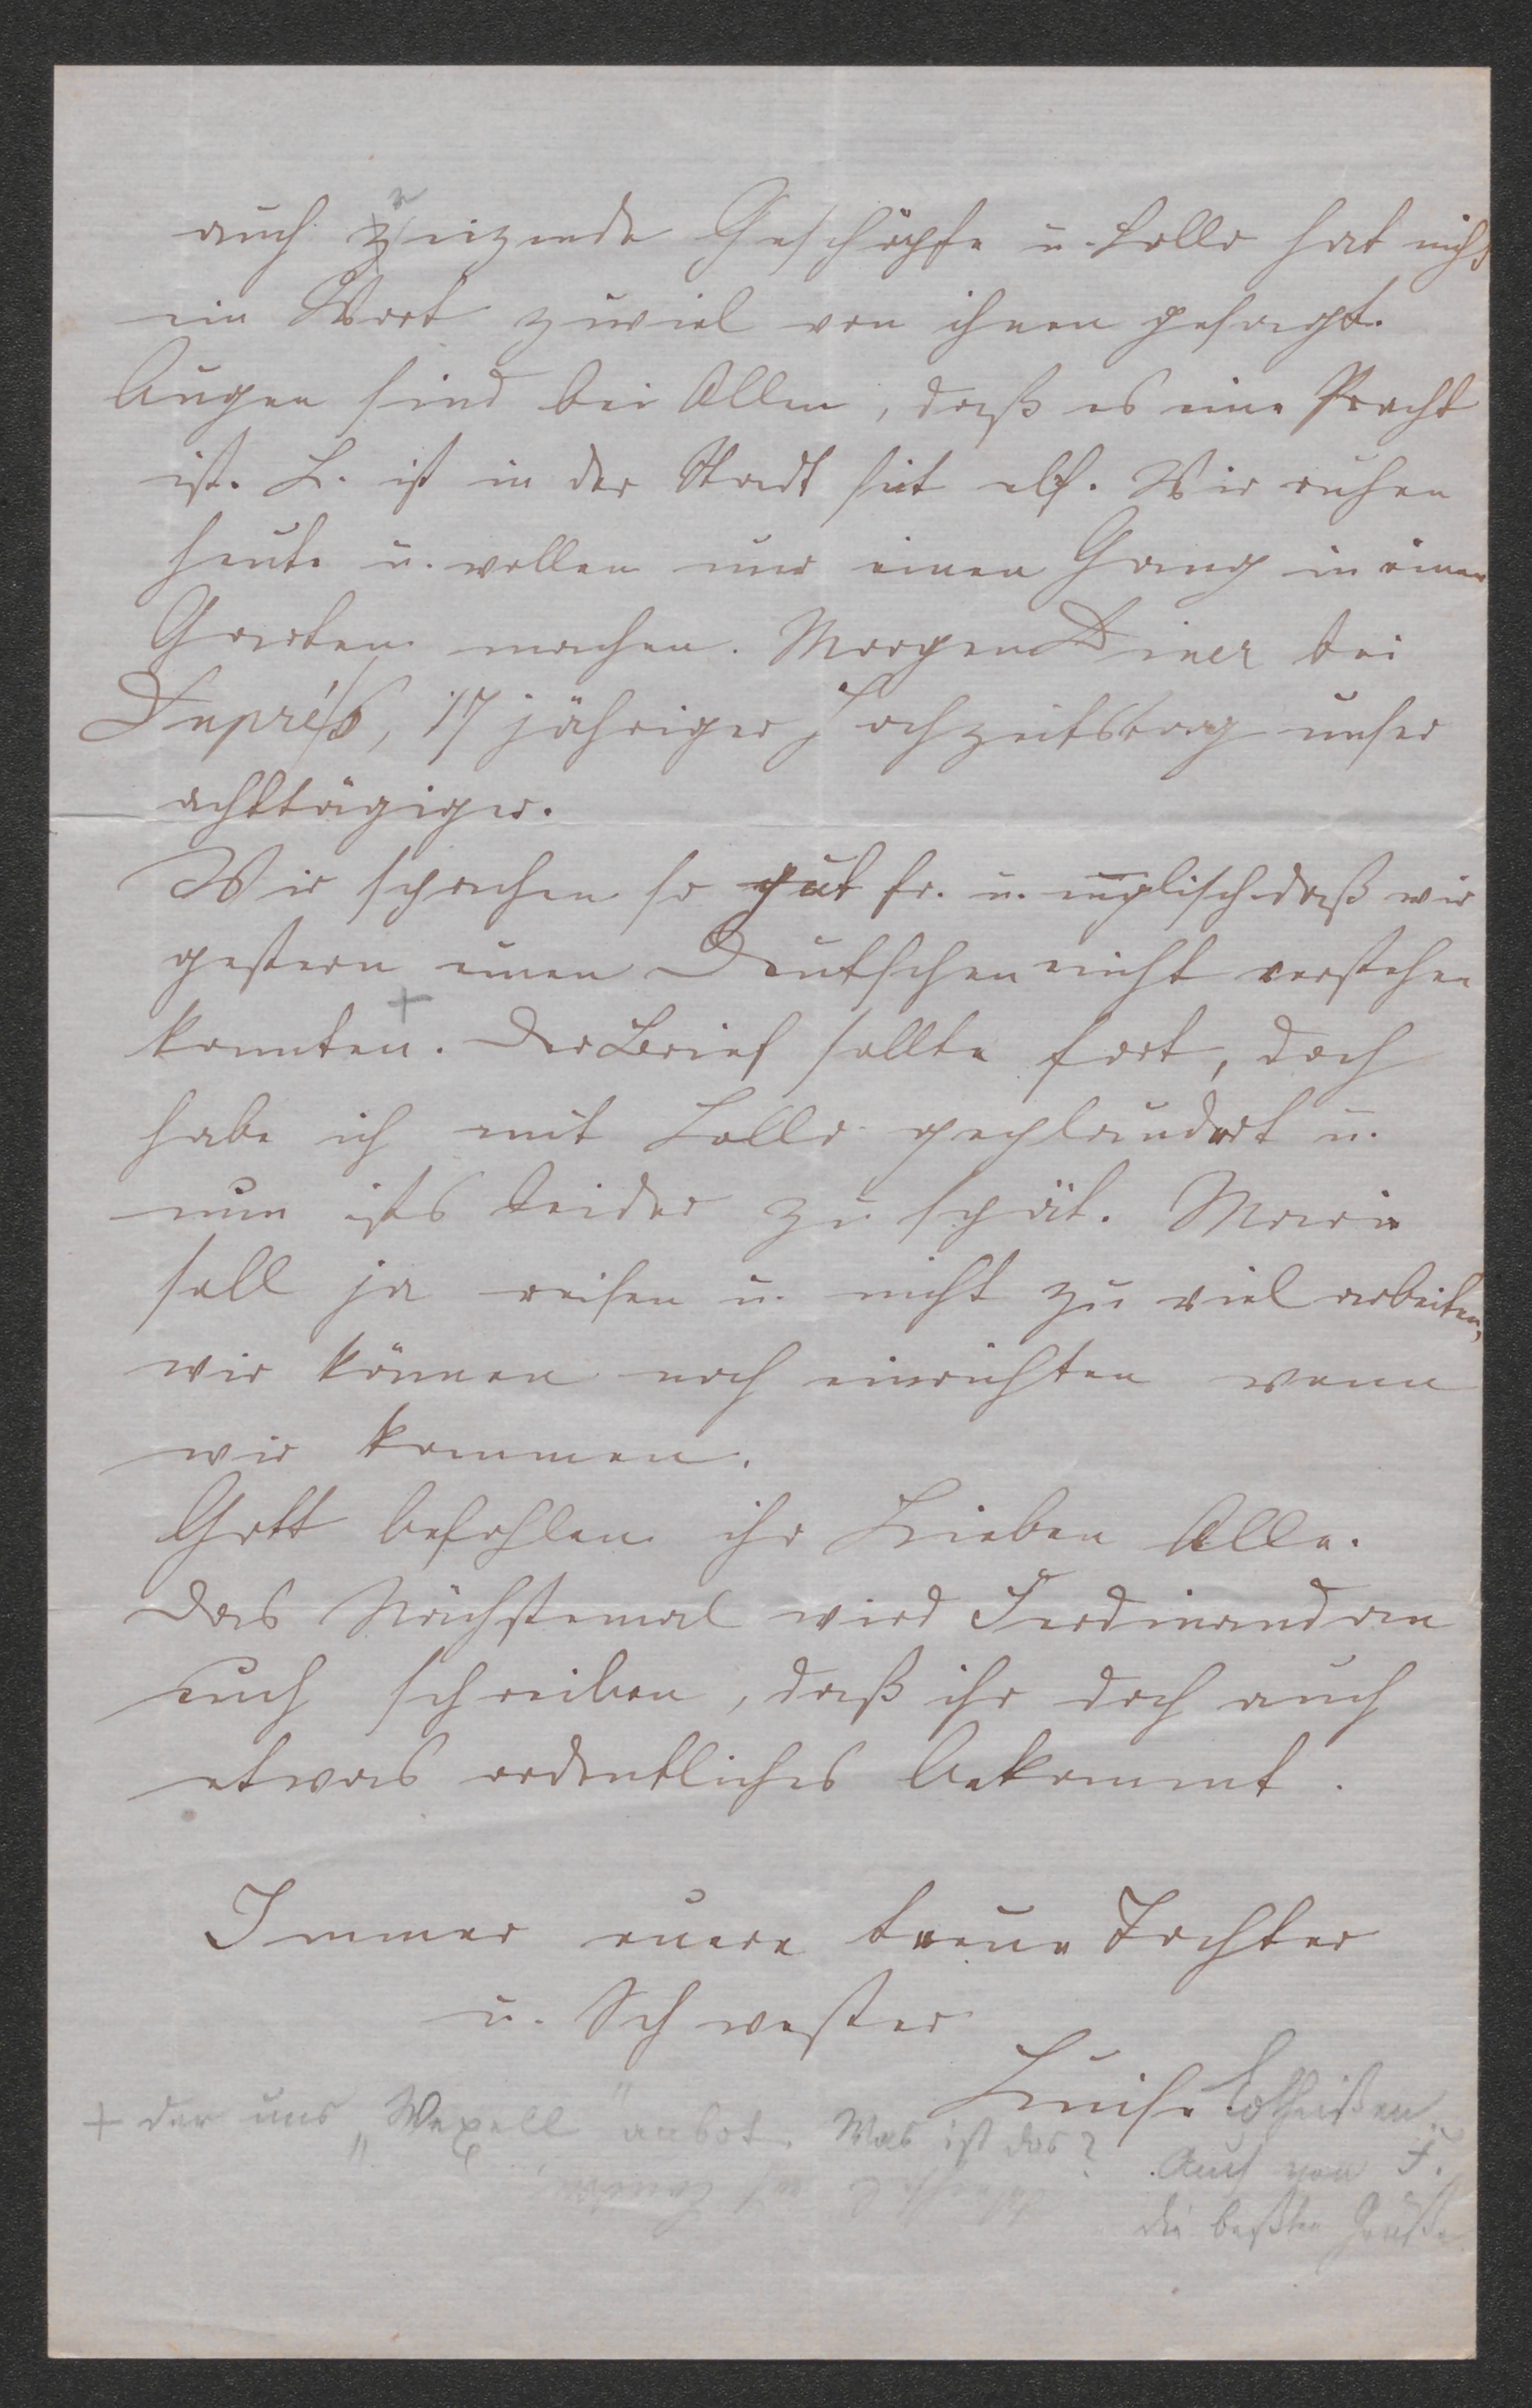 auch reizende Geschöpfe u. Lolla hat nicht
ein Wort zuviel von ihnen gesagt.
Augen sind bei Allen, daß es eine Pracht
ist. L. ist in der Stadt seit elf. Wir ruhen
heute u. wollen nur einen Gang in einen
Garten machen. Morgen Diner bei
Duprés, 17 jähriger Hochzeitstag unser
achttägiger.
Wir sprachen so gut fr. u. englisch daß wir
gestern einen Deutschen nicht verstehen
konnten. + Der Brief sollte fort, doch
habe ich mit Lolla geplaudert u.
nun ists leider zu spät. Marie
soll ja reisen u. nicht zu viel arbeiten,
wir können noch einrichten wenn
wir kommen.
Gott befohlen ihr Lieben Alle.
Das Nächstemal wird Ferdinand an
euch schreiben, daß ihr doch auch
etwas ordentliches bekommt.
Immer euere treue Tochter
u. Schwester
Luise Lotheißen.
+ der uns "Wexell" anbot. Was ist das?
Auch von F.
die beßten Grüße